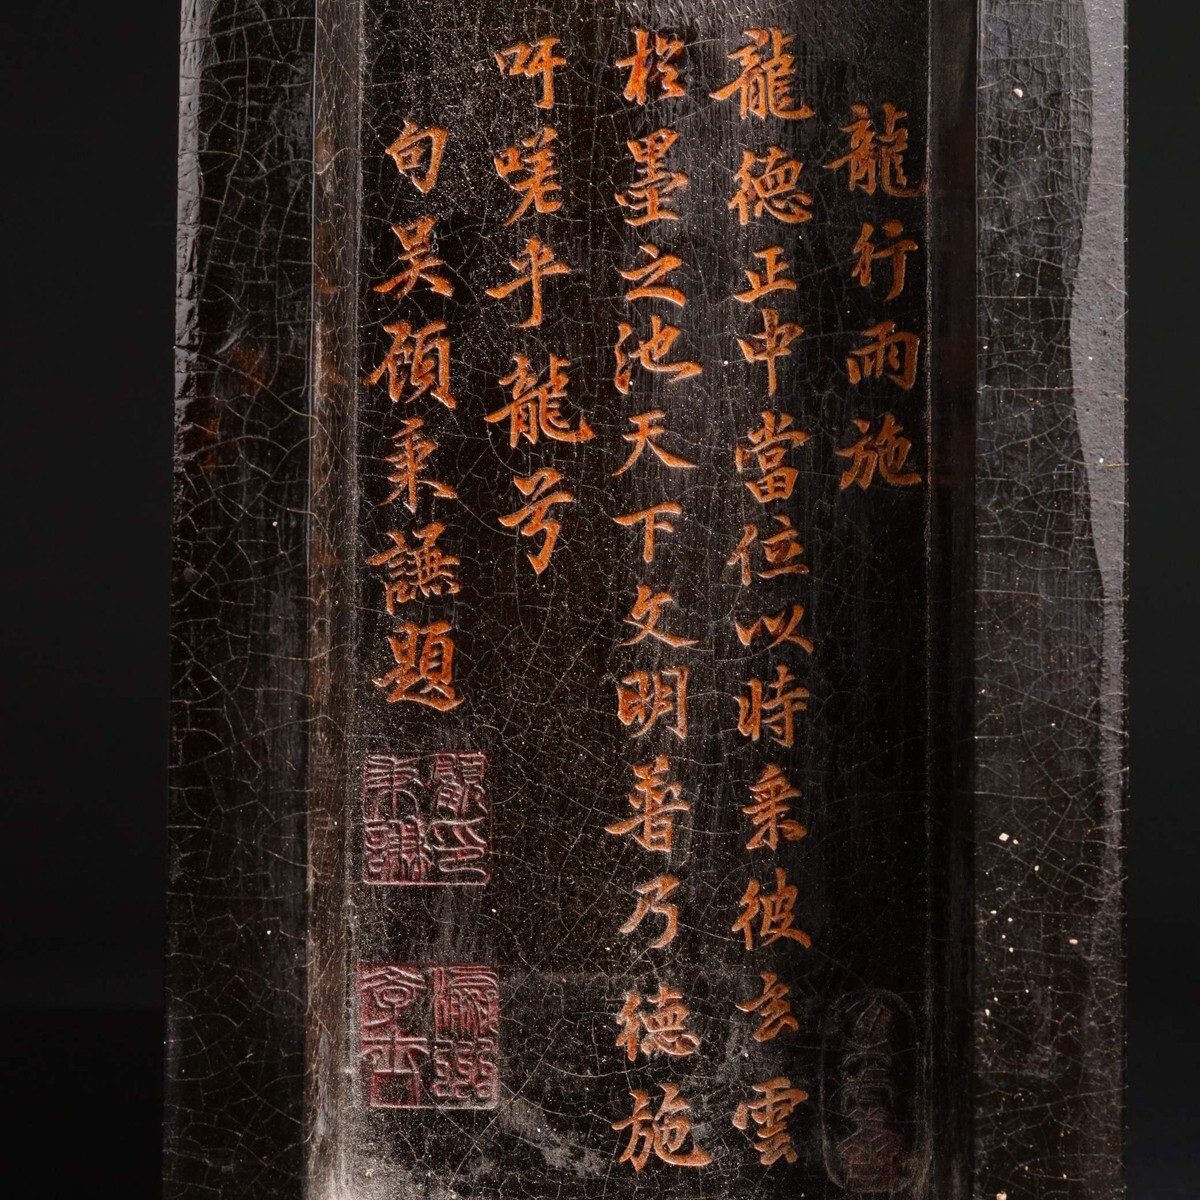 龍行雨施
龍德正中當位以時乘彼玄雲
扵墨之池天下文明普乃德施
吁嗟乎龍兮
句吳顧秉謙題
顧印秉謙
學士